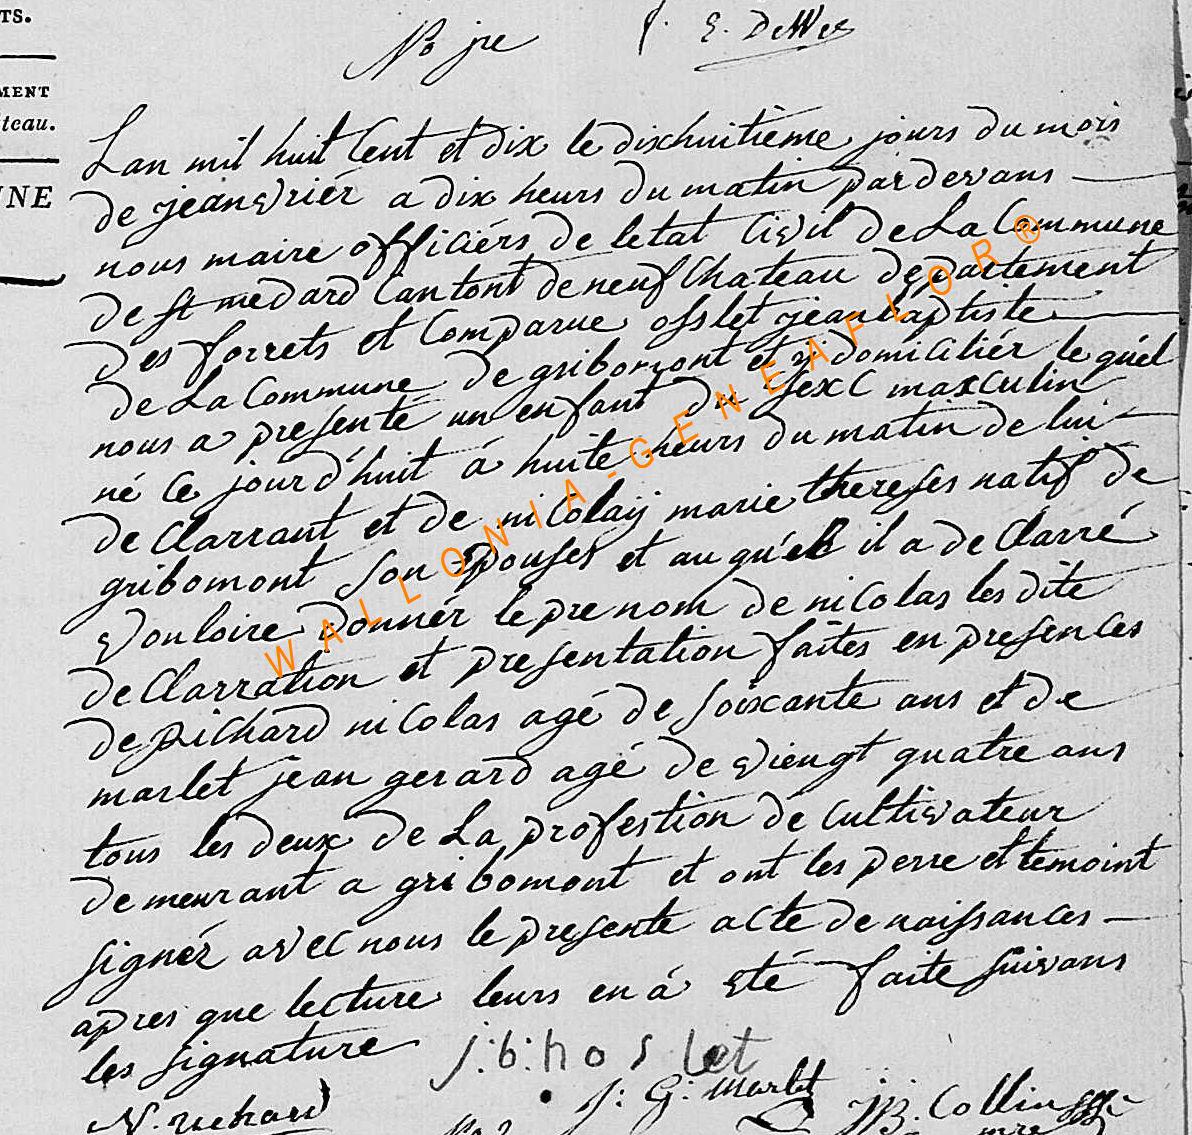 TS.
No 1re
J. E. DeWez
MENT
teau.
NNE
Lan mil huit Cent et dix le dixhuitième jours du mois
de jeanvriér a dix heurs du matin pardevans
nous maire officiérs de letat Civil de La Commune
de st medard Cantont de neufChateau departement
des forrets et Comparue osslet jean baptiste
de La Commune de gribomont et y domiciliér le quel
nous a presenté un enfant du sexe maxculin
né ce jourd'huit á huite heurs du matin de lui
declarrant et de nicolaij marie thereses natif de
gribomont son Epouses et au quel il a declarré
vouloire donnér le prenom de nicolas les dite
declarration et presentation faites en presences
de Richard nicolas agé de soixante ans et de
marlet jean gerard agé de viengt quatre ans
tous les deux de La profestion de cultivateur
demeurant a gribomont et ont les perre et temoint
signér avec nous le presente acte de naissances
apres que lecture leurs en á eté faite suivans
les signature
j:b:hoslet
N. richard
J: G: Marlet
JB. Collin
mre
WALLONIA-GENEAFLOR®